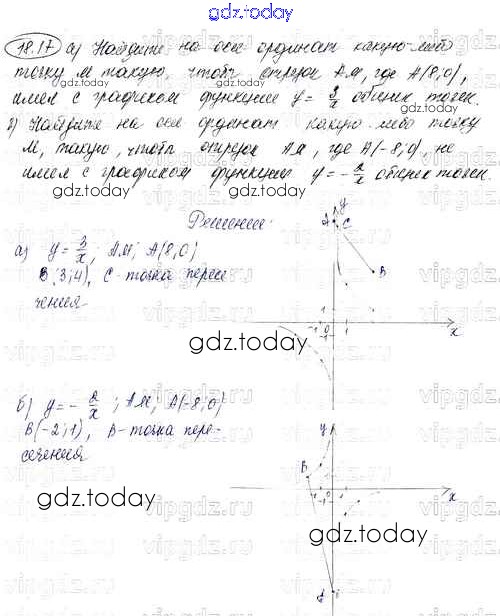 gdz.today
18.17 а) Найдите на оси ординат какую-либо
точку М такую, чтобы отрезок АМ, где А(8;0),
имел с графиком функции y = 3/x общих точек.
Найдите на оси ординат какую-либо точку
М, такую, чтобы отрезок АМ, где А(-8;0), не
имел с графиком функции y = -2/x общих точек.
gdz.today
gdz.today
gdz.today
gdz.today
Решение:
а) y = 3/x ; АМ; А(8;0)
3;4), С-точка пересе
чения
gdz.today
y
A
C
B
1
-1 0
x
б) y = - 2/x ; АМ; А(-8;0)
В(-2;1), В-точка пере-
сечения
gdz.today
gdz.today
y
B
x
vipgdz.ru